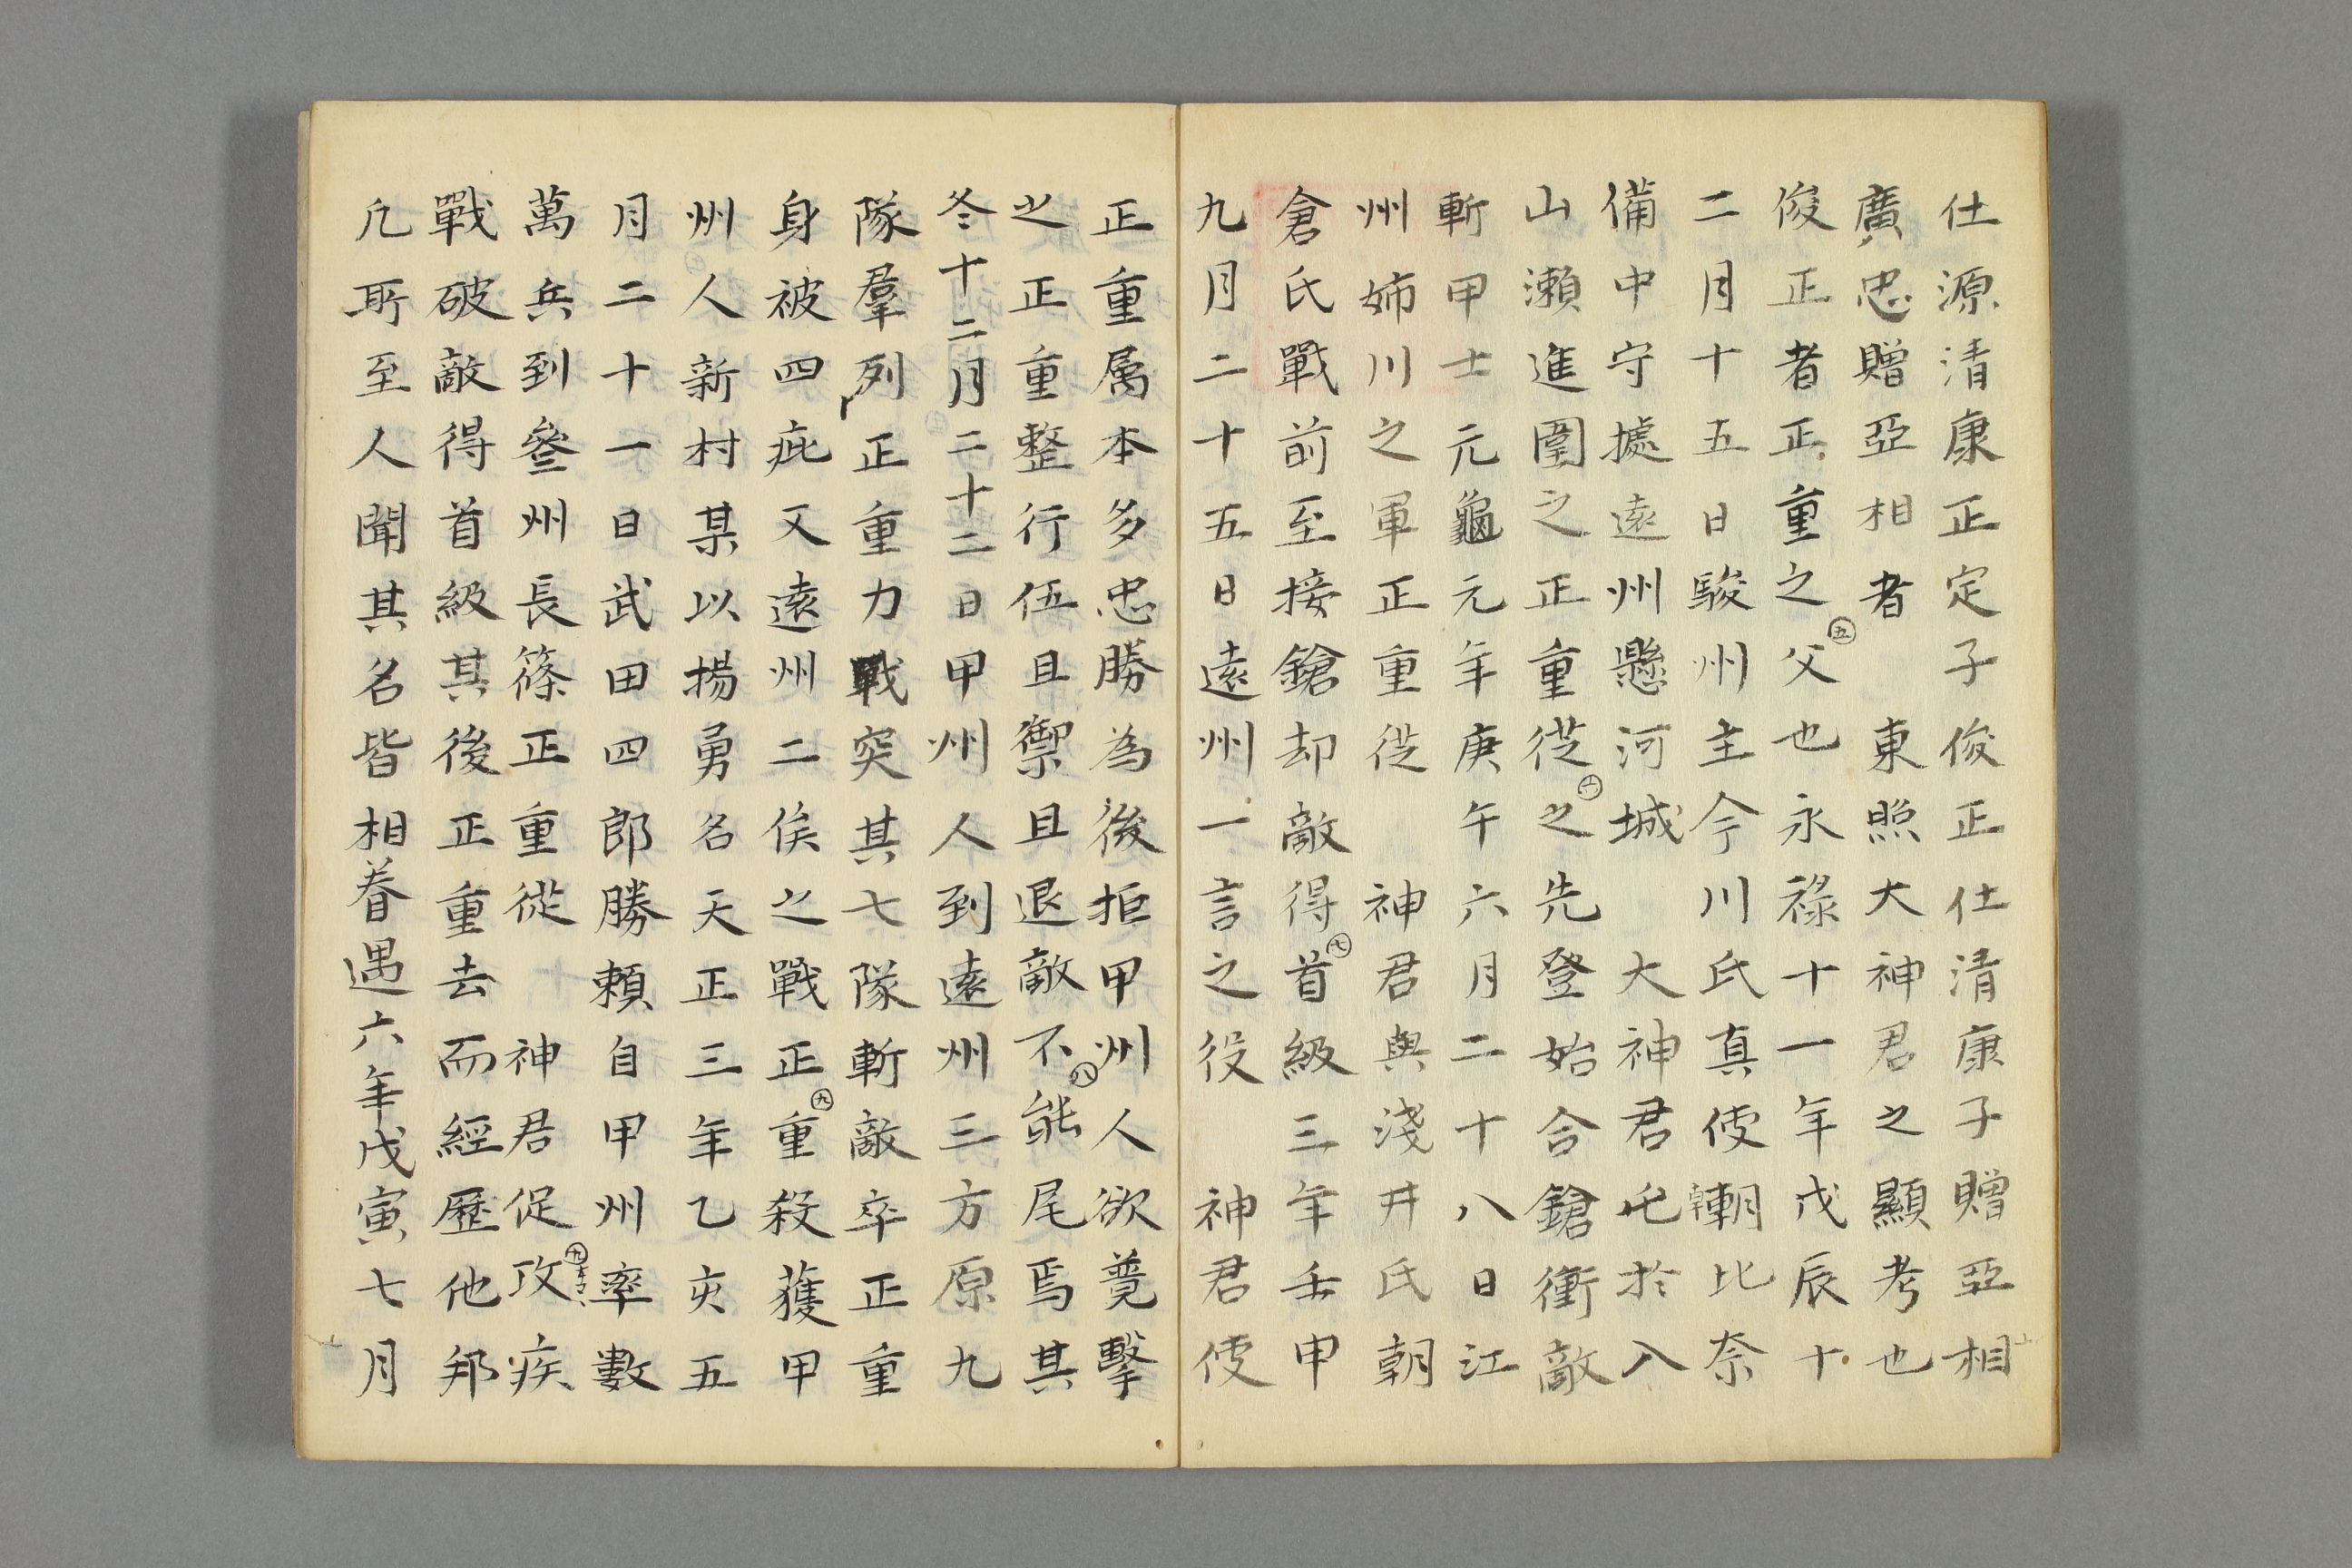 仕源清康正定子俊正仕清康子贈亞相
廣忠贈亞相者　東照大神君之顯考也
俊正者正重之父也永祿十一年戊辰十
二月十五日駿州主今川氏真使朝比奈
備中守據遠州懸河城　大神君屯於入
山瀬進圍之正重從之先登始合鎗衝敵
斬甲士元元龜元年庚午六月二十八日江
州姉川之軍正重從　神君與淺井氏朝
倉氏戰前至接鎗却敵得首級三年壬申
九月二十五日遠州一言之役　神君使
正重属本多忠勝為後拒甲州人欲競擊
之正重整行伍且禦且退敵不能尾焉其
冬十二月二十二日甲州人到遠州三方原九
隊羣列正重力戰突其七隊斬敵卒正重
身被四疵又遠州二俣之戰正重殺獲甲
州人新村某以揚勇名天正三年乙亥五
月二十一日武田四郎勝頼自甲州率數
萬兵到參州長篠正重從　神君促攻疾
戰破敵得首級其後正重去而經歷他邦
凢所至人聞其名皆相眷遇六年戊寅七月
五
六
七
八
九